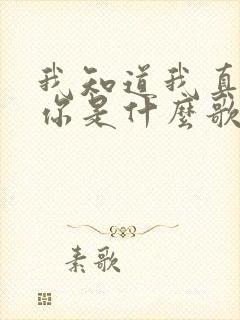 我知道我真
你是什麼歌
素歌